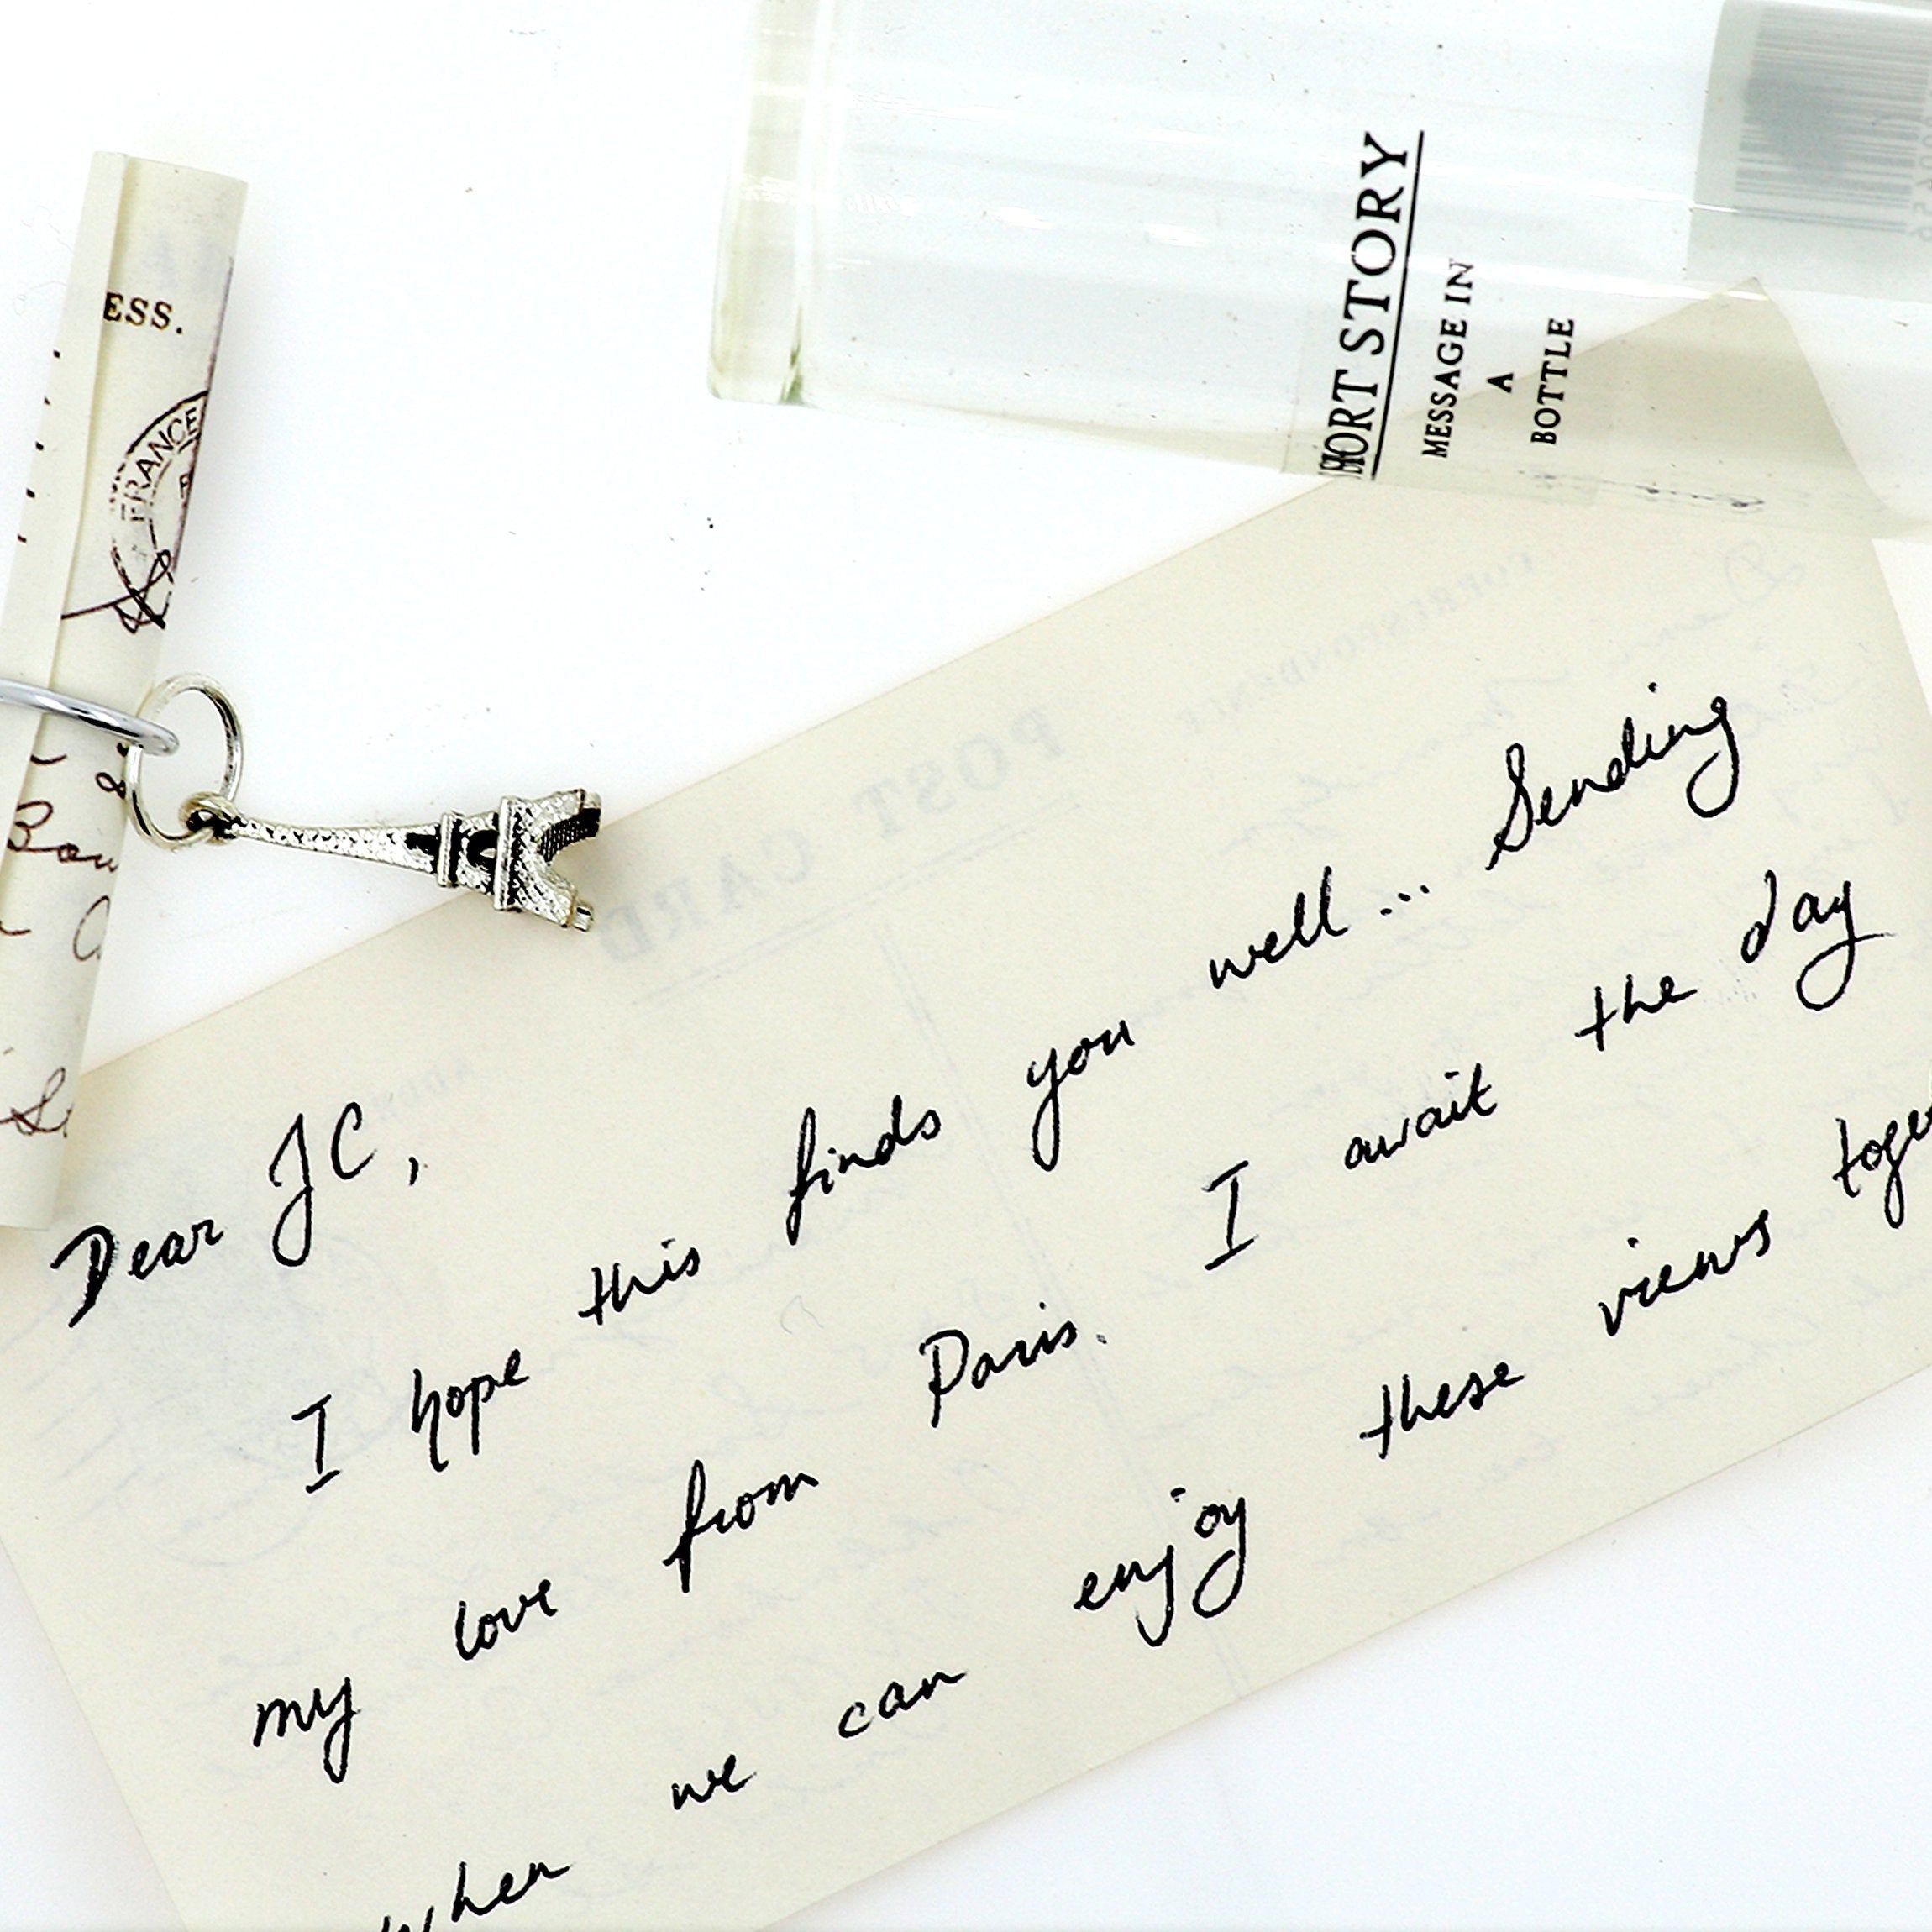 SHORT STORY
MESSAGE IN
A
BOTTLE
ESS.
FRANCE
POST CARD
CORRESPONDENCE
Dear JC,
I hope this finds you well... Sending
my love from Paris. I await the day
when we can enjoy these views toge